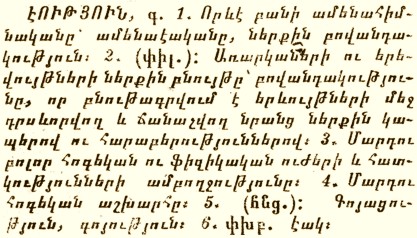 ԷՈՒԹՅՈՒՆ, գ. 1. Որևէ բանի ամենահիմ-
նականը՝ ամենաէականը, ներքին բովանդա-
կություն։ 2. (փիլ.)։ Առարկաների ու երե-
վույթների ներքին բնույթը՝ բովանդակությու-
նը, որ բնութագրվում է երևույթների մեջ
դրսևորվող և ճանաչվող նրանց ներքին կա-
պերով ու հարաբերություններով։ 3. Մարդու
բոլոր հոգեկան ու ֆիզիկական ուժերի և հատ-
կությունների ամբողջությունը։ 4. Մարդու
հոգեկան աշխարհը։ 5. (հնց.)։ Գոյացու-
թյուն, գոյություն։ 6. փխբ. էակ։